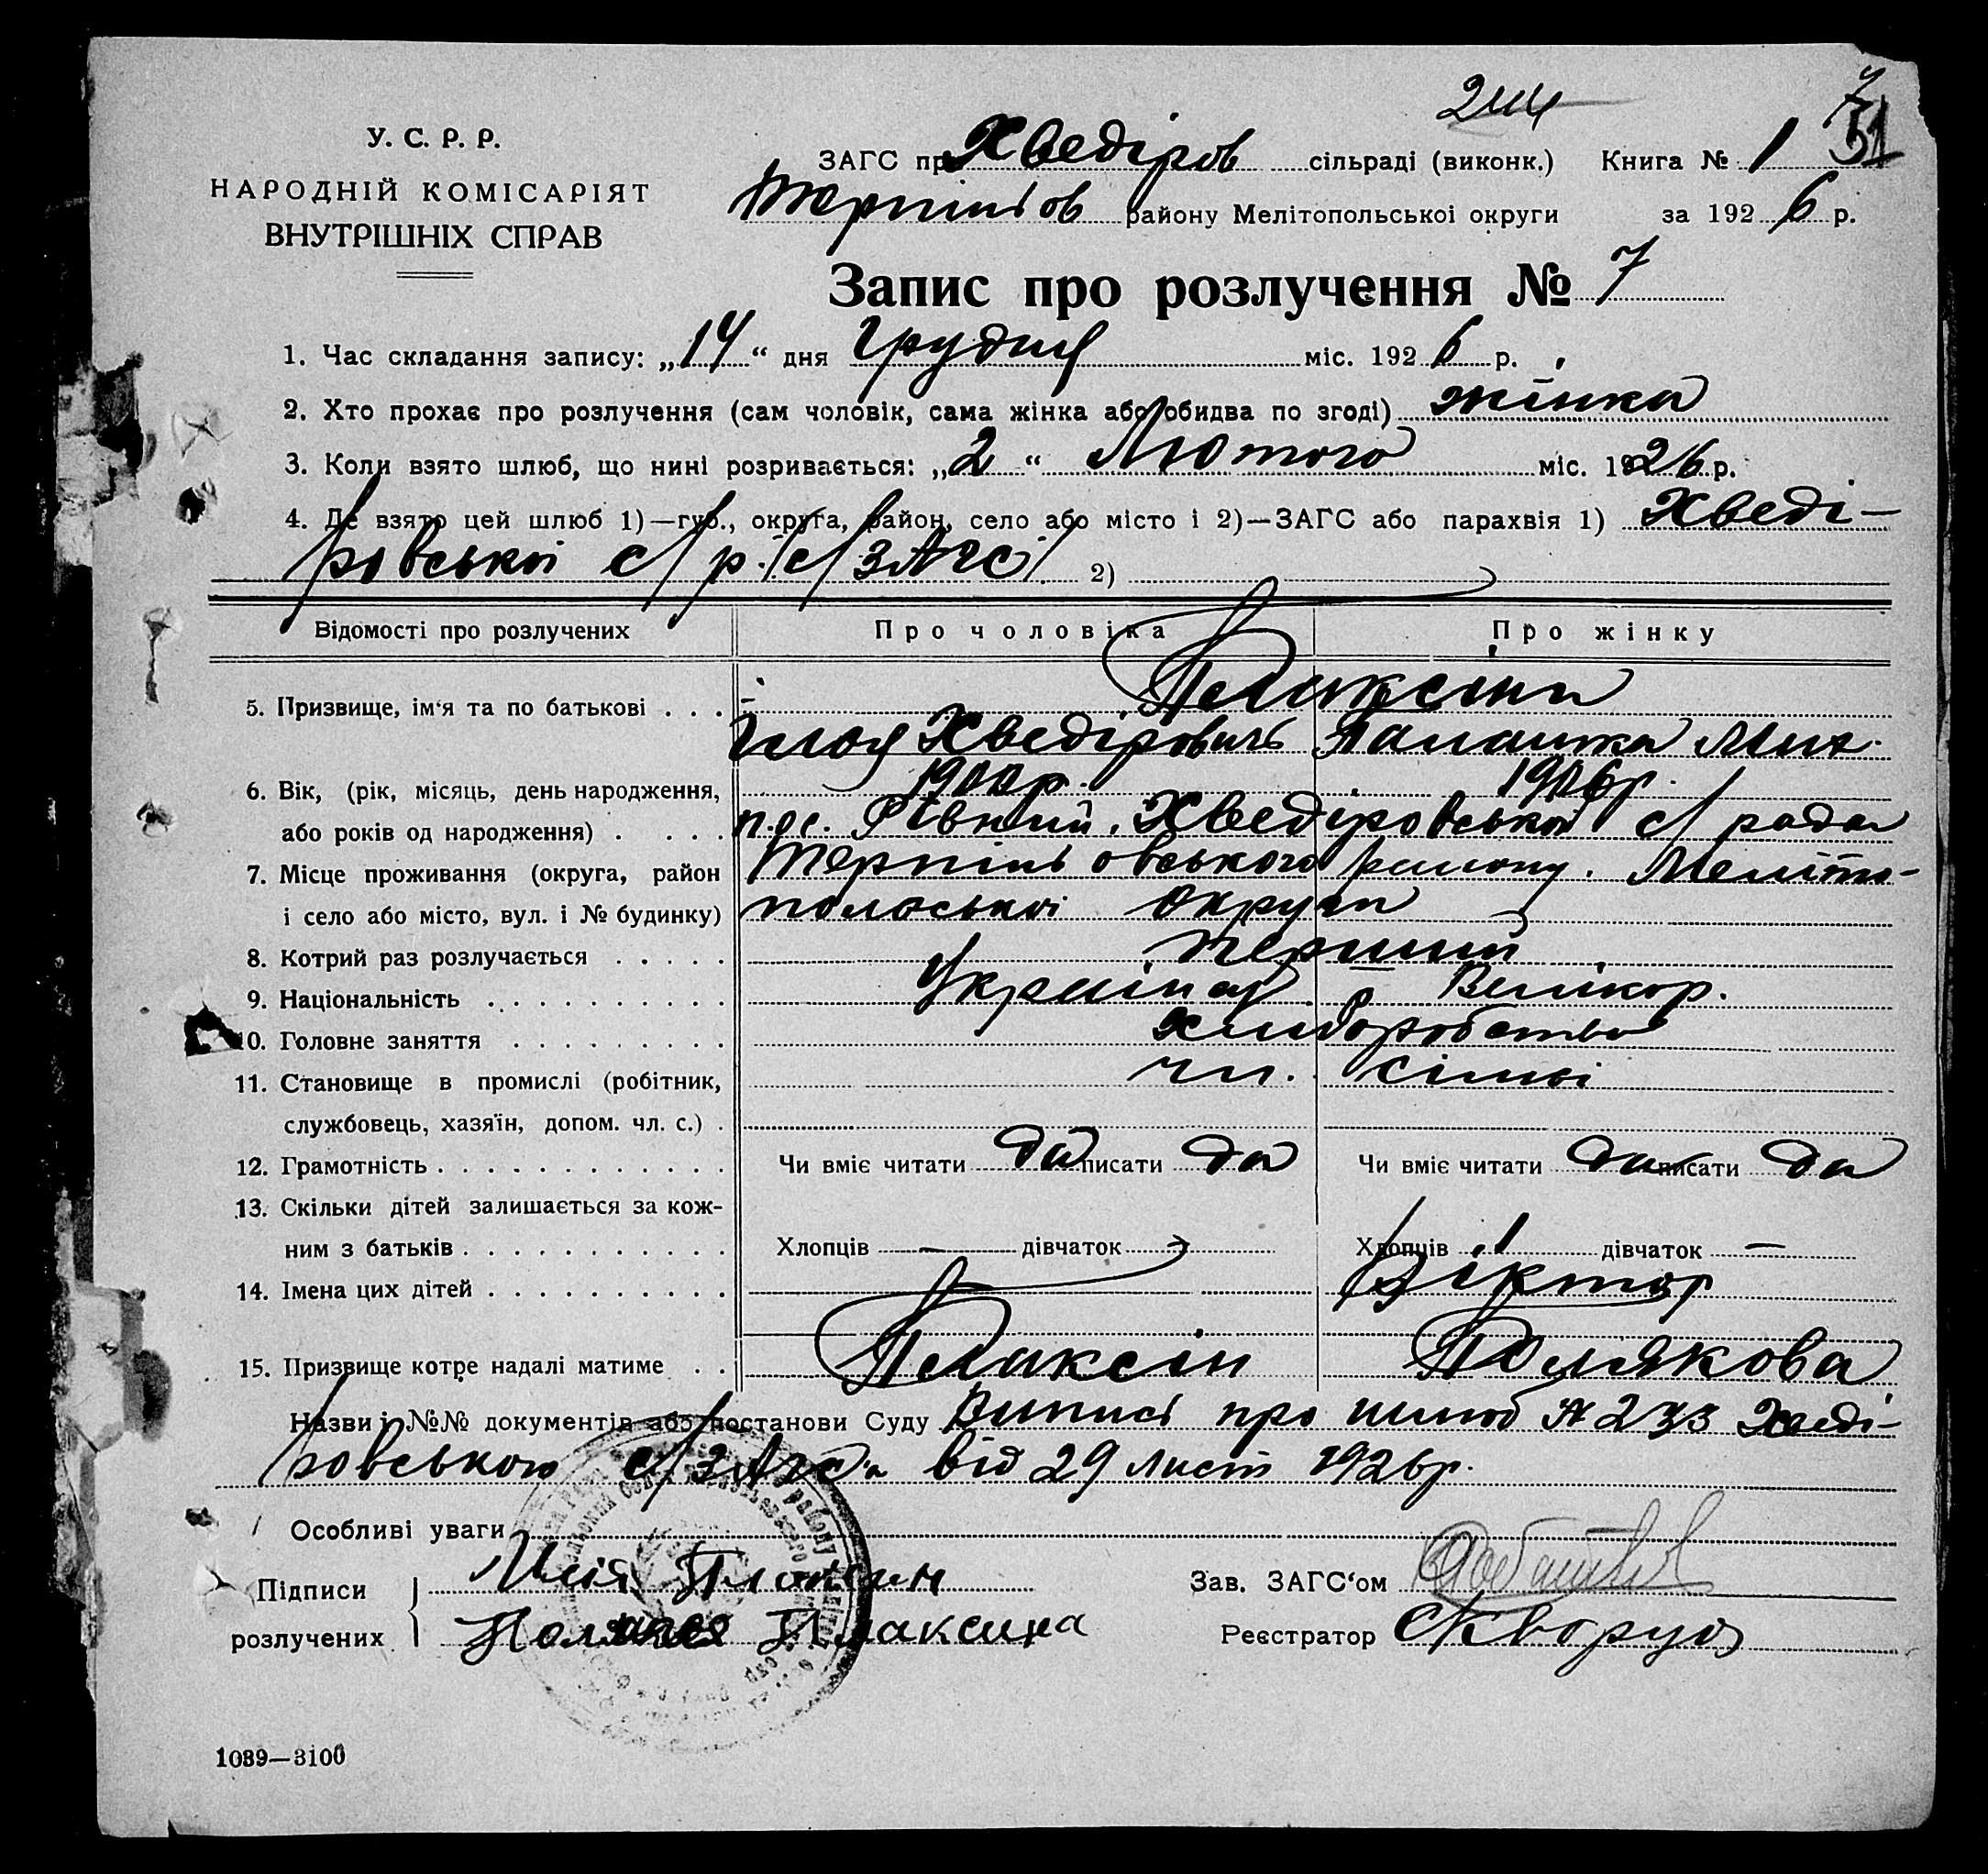 244
7
51
У. С. Р. Р.
НАРОДНІЙ КОМІСАРІЯТ
ВНУТРІШНІХ СПРАВ
ЗАГС при Хведіров сільраді (виконк.) Книга № 1
Терпіньов району Мелітопольської округи за 1926 р.
Запис про розлучення № 7
1. Час складання запису: „14“ дня Грудня міс. 1926 р.
2. Хто прохає про розлучення (сам чоловік, сама жінка або обидва по згоді) жінка
3. Коли взято шлюб, що нині розривається: „2“ Лютого міс. 1926 р.
4. Де взято цей шлюб 1)—губ., округа, район, село або місто і 2)—ЗАГС або парахвія 1) Хведі-
ровській с/р. с/ЗАГСі 2)
Відомості про розлучених Про чоловіка Про жінку
5. Призвище, ім‘я та по батькові . . . Плаксіни
Ілля Хведірович Палажка Мих.
6. Вік, (рік, місяць, день народження, 1900р. 1906р.
або років од народження) . . . . пос. Рівний, Хведіровської с/ рада
7. Місце проживання (округа, район Терпіньовського району. Меліто-
і село або місто, вул. і № будинку) польської округи
8. Котрий раз розлучається . . . . . перший
9. Національність . . . . . . . . . Велікор.
10. Головне заняття . . . . . . . . . хліборобство
11. Становище в промислі (робітник, чл. сімьі
службовець, хазяїн, допом. чл. с.) .
12. Грамотність . . . . . . . . . . . . Чи вміє читати да писати да Чи вміє читати да писати да
13. Скільки дітей залишається за кож-
ним з батьків . . . . . . . . . . . Хлопців — дівчаток — Хлопців 1 дівчаток —
14. Імена цих дітей . . . . . . . . . . Віктор
15. Призвище котре надалі матиме . . Плаксін Полякова
Назви і №№ документів або постанови Суду Виписі про шлюб № 233 Хведі-
ровською с/ЗАГСа від 29 лист 1926р.
Особливі уваги
Підписи Ілія Плаксин Зав. ЗАГС‘ом
розлучених Плаксина Реєстратор
1089—3100